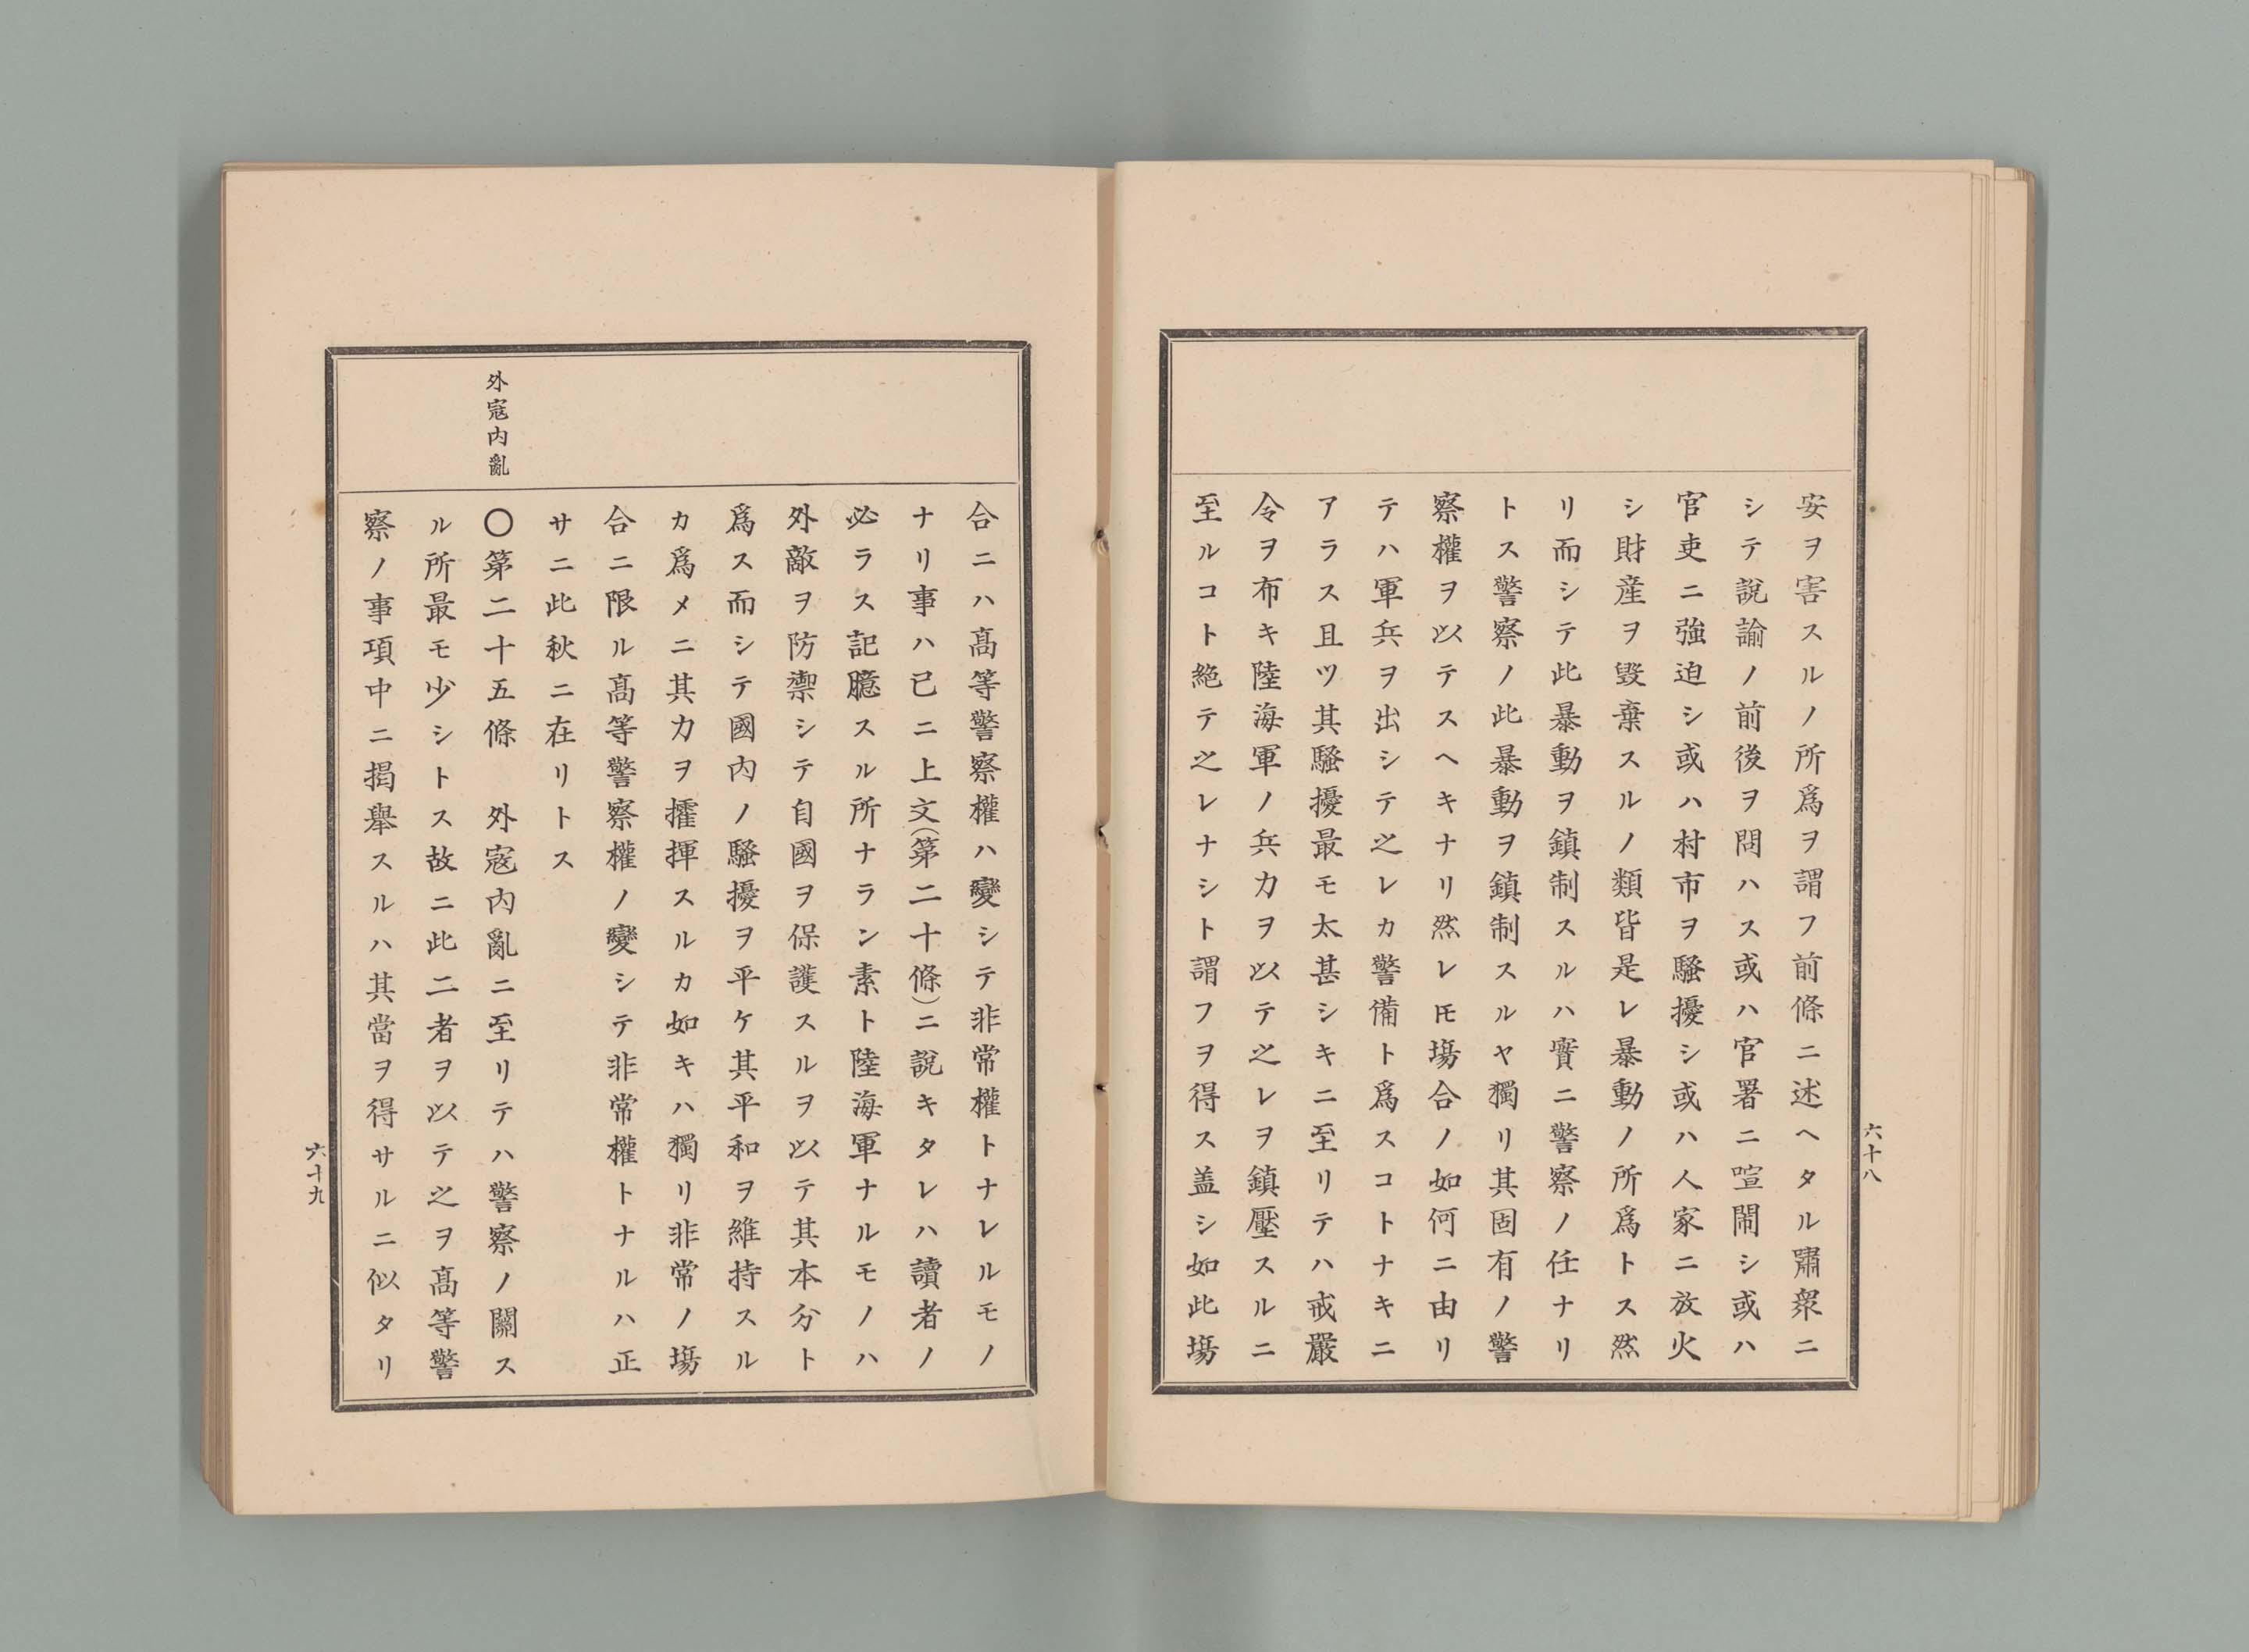 安ヲ害スルノ所爲ヲ謂フ前條ニ述ヘタル嘯衆ニ
シテ説諭ノ前後ヲ問ハス或ハ官署ニ喧鬧シ或ハ
官吏ニ強迫シ或ハ村市ヲ騷擾シ或ハ人家ニ放火
シ財産ヲ毀棄スルノ類皆是レ暴動ノ所爲トス然
リ而シテ此暴動ヲ鎮制スルハ實ニ警察ノ任ナリ
トス警察ノ此暴動ヲ鎮制スルヤ獨リ其固有ノ警
察權ヲ以テスヘキナリ然レ𪜈塲合ノ如何ニ由リ
テハ軍兵ヲ出シテ之レカ警備ト爲スコトナキニ
アラス且ツ其騷擾最モ太甚シキニ至リテハ戒嚴
令ヲ布キ陸海軍ノ兵力ヲ以テ之レヲ鎮壓スルニ
至ルコト絶テ之レナシト謂フヲ得ス盖シ如此塲
六十八
合ニハ髙等警察權ハ變シテ非常權トナレルモノ
ナリ事ハ已ニ上文(第二十條)ニ説キタレハ讀者ノ
必ラス記臆スル所ナラン素ト陸海軍ナルモノハ
外敵ヲ防禦シテ自國ヲ保護スルヲ以テ其本分ト
爲ス而シテ國内ノ騷擾ヲ平ケ其平和ヲ維持スル
カ爲メニ其力ヲ擂揮スルカ如キハ獨リ非常ノ塲
合ニ限ル髙等警察權ノ變シテ非常權トナルハ正
サニ此秋ニ在リトス
外寇内亂
〇第二十五條　外寇内亂ニ至リテハ警察ノ關ス
ル所最モ少シトス故ニ此二者ヲ以テ之ヲ髙等警
察ノ事項中ニ掲舉スルハ其當ヲ得サルニ似タリ
六十九